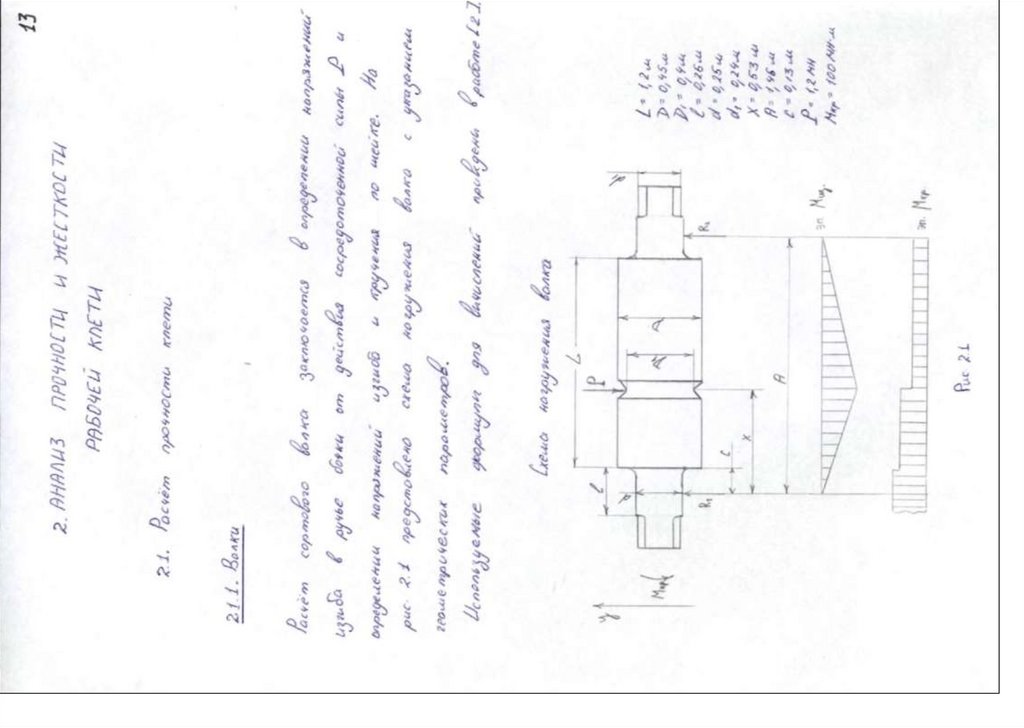 13
2. АНАЛИЗ ПРОЧНОСТИ И ЖЕСТКОСТИ
РАБОЧЕЙ КЛЕТИ
2.1. Расчёт прочности клети
2.1.1. Волки
Расчёт сортового волка заключается в определении напряжений
изгиба в ручье бочки от действия сосредоточенной силы P и
определении напряжений изгиба и кручения по шейке. На
рис. 2.1 представлена схема нагружения волка с указанием
геометрических параметров.
Используемые формулы для вычислений приведены в работе [2].
Схема нагружения волка
y
Mкр
l
L
P
d
D
D₁
R₁
R₂
c
x
A
эп. Mиз.
эп. Mкр.
L = 1,2 м
D = 0,45 м
D₁ = 0,4 м
l = 0,26 м
d = 0,25 м
d₁ = 0,24 м
x = 0,63 м
A = 1,46 м
c = 0,13 м
P = 1,2 МН
Mкр = 100 МН·м
Рис 2.1